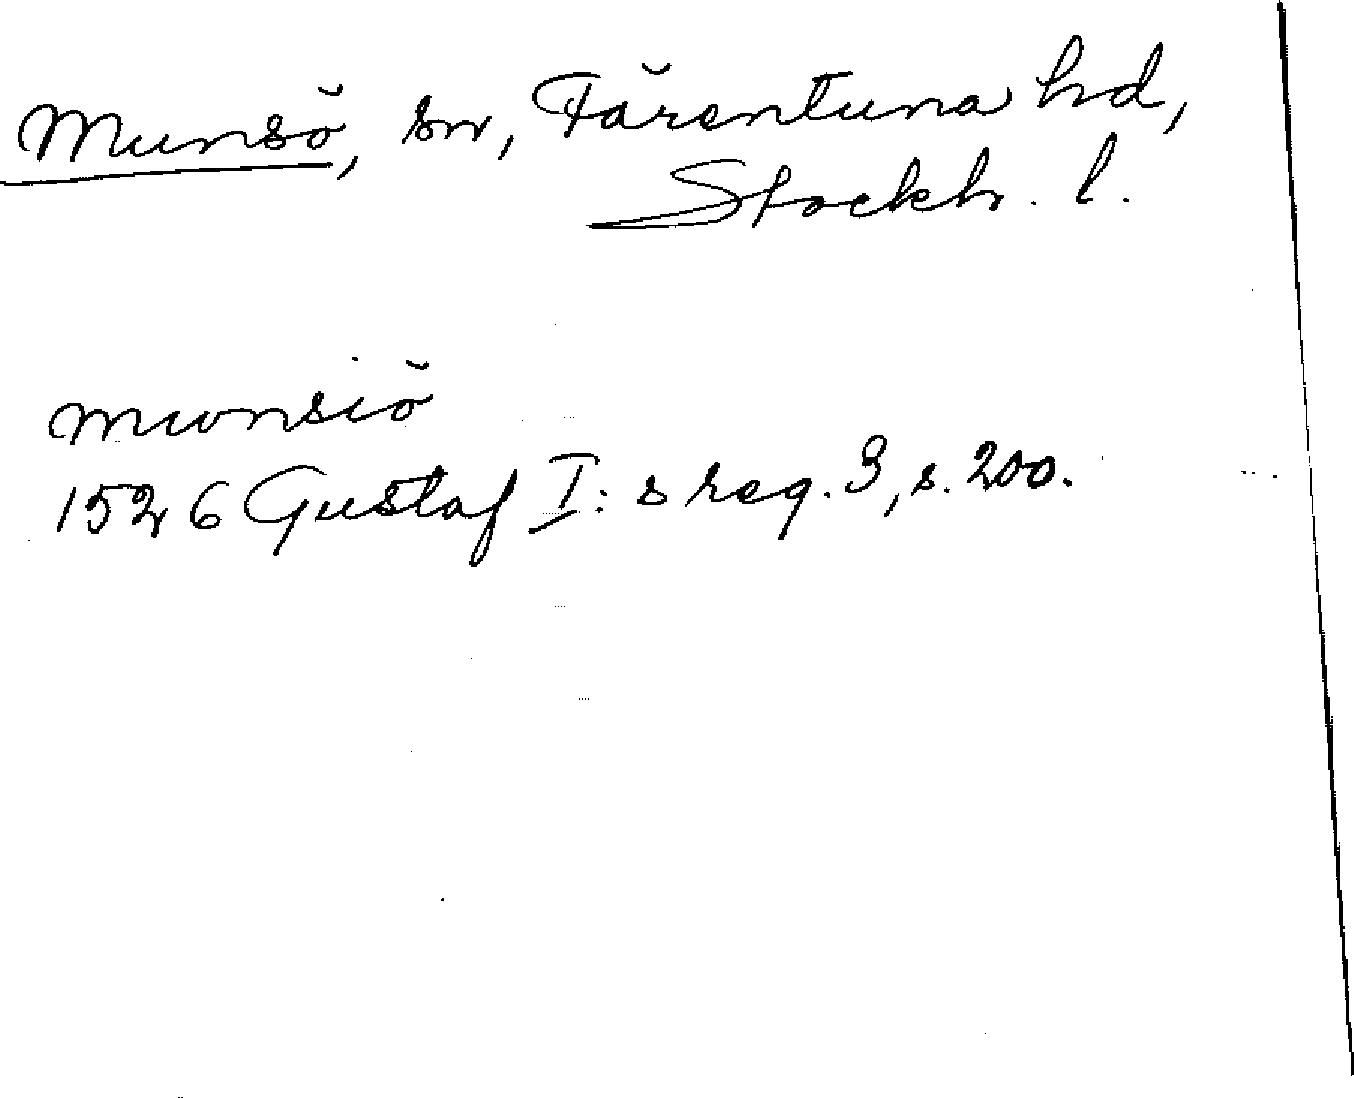 Munsö, sn, Färentuna hd,
Stockh. l.
Mwnsiö
1526 Gustaf I:s reg. 3, s. 200.